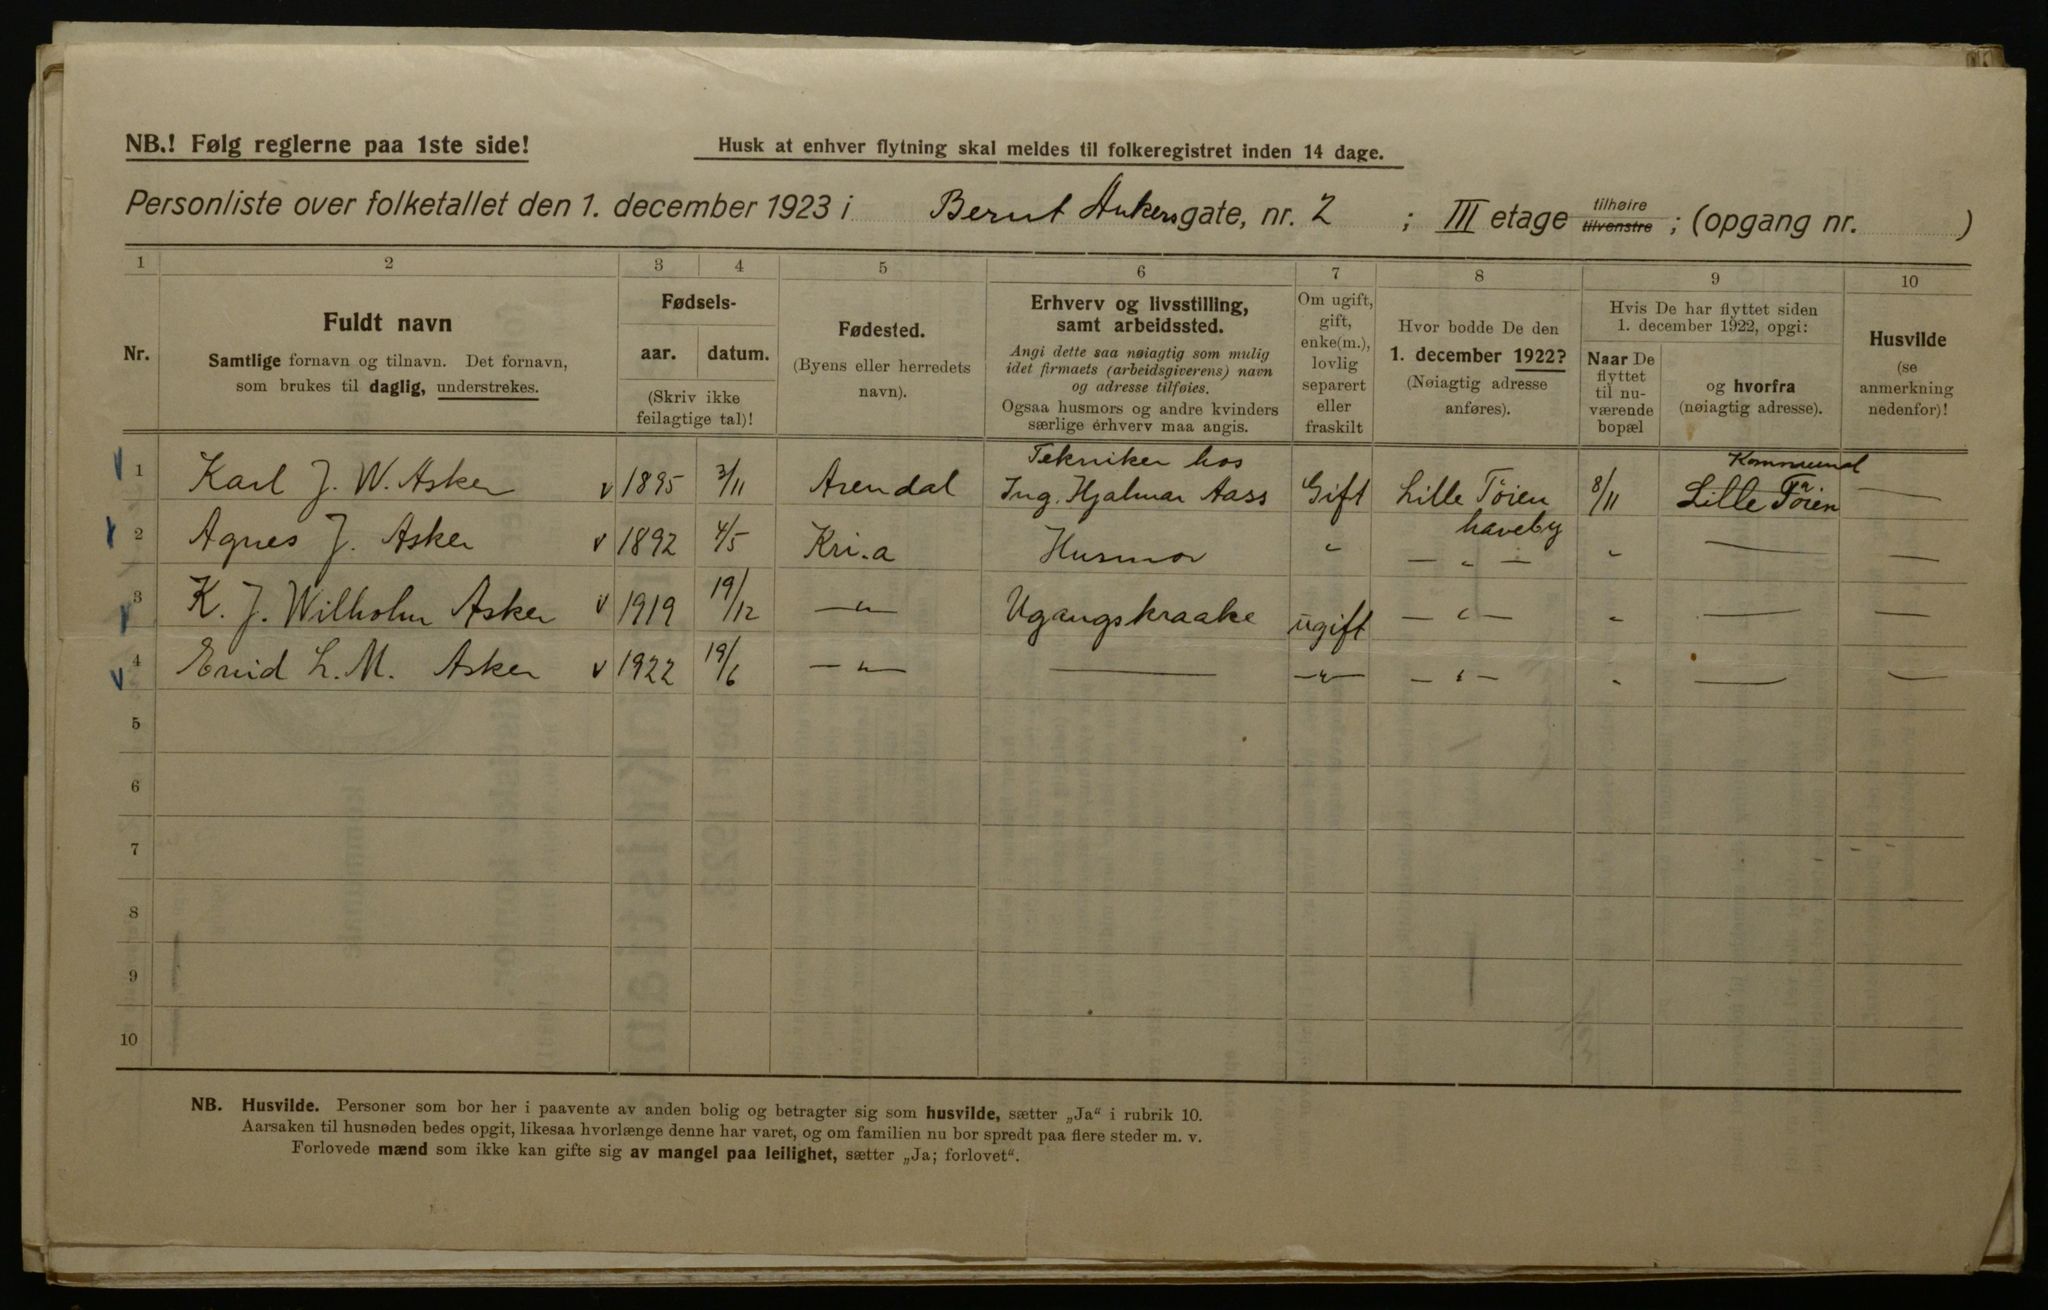 NB.! Følg reglerne paa 1ste side!
Husk at enhver flytning skal meldes til folkeregistret inden 14 dage.
Personliste over folketallet den 1. december 1923 i Bernt Ankersgate, nr. 2 ; III etage tilhøire tilvenstre ; (opgang nr. )
1 2 3 4 5 6 7 8 9 10
Nr.
Fuldt navn
Samtlige fornavn og tilnavn. Det fornavn,
som brukes til daglig, understrekes.
Fødsels-
aar. datum.
(Skriv ikke
feilagtige tal)!
Fødested.
(Byens eller herredets
navn).
Erhverv og livsstilling,
samt arbeidssted.
Angi dette saa nøiagtig som mulig
idet firmaets (arbeidsgiverens) navn
og adresse tilføies.
Ogsaa husmors og andre kvinders
særlige erhverv maa angis.
Om ugift,
gift,
enke(m.),
lovlig
separert
eller
fraskilt
Hvor bodde De den
1. december 1922?
(Nøiagtig adresse
anføres).
Hvis De har flyttet siden
1. december 1922, opgi:
Naar De
flyttet
til nu-
værende
bopæl
og hvorfra
(nøiagtig adresse).
Husvilde
(se
anmerkning
nedenfor)!
Tekniker hos Kommunal
1 Karl J. W. Asker v 1895 3/11 Arendal Ing. Hjalmar Aass Gift Lille Töien 8/11 Lille Töien —
haveby
2 Agnes J. Asker v 1892 4/5 Kri.a Husmor " — " — " — —
3 K. J. Wilholm Asker v 1919 19/12 — " — Ugangskraake ugift — " — " — —
4 Enid L. M. Asker v 1922 19/6 — " — — — " — — " — " — —
5
6
7
8
9
10
NB. Husvilde. Personer som bor her i paavente av anden bolig og betragter sig som husvilde, sætter „Ja“ i rubrik 10.
Aarsaken til husnøden bedes opgit, likesaa hvorlænge denne har varet, og om familien nu bor spredt paa flere steder m. v.
Forlovede mænd som ikke kan gifte sig av mangel paa leilighet, sætter „Ja; forlovet“.